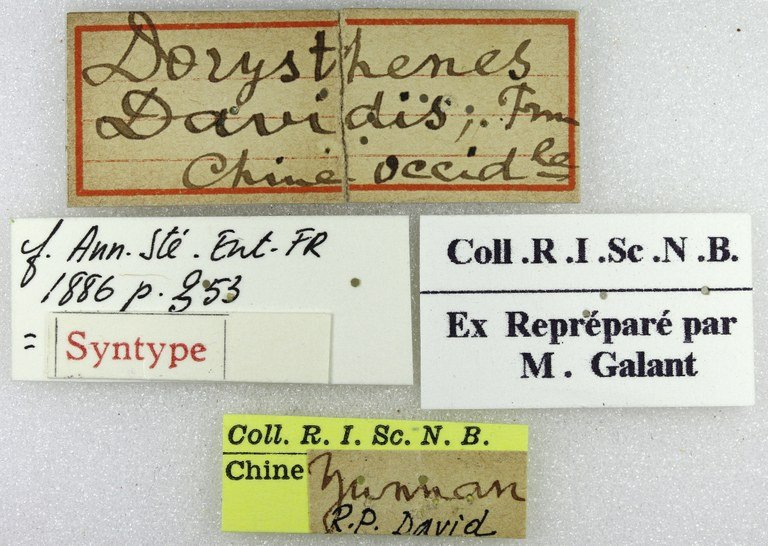 Dorysthenes
Davidis; Frm
Chine occid le
f. Ann. Sté. Ent. FR
1886 p. 353
= Syntype
Coll .R .I .Sc .N .B.
Ex Repréparé par
M . Galant
Coll. R. I. Sc. N. B.
Chine Yunnan
R.P. David